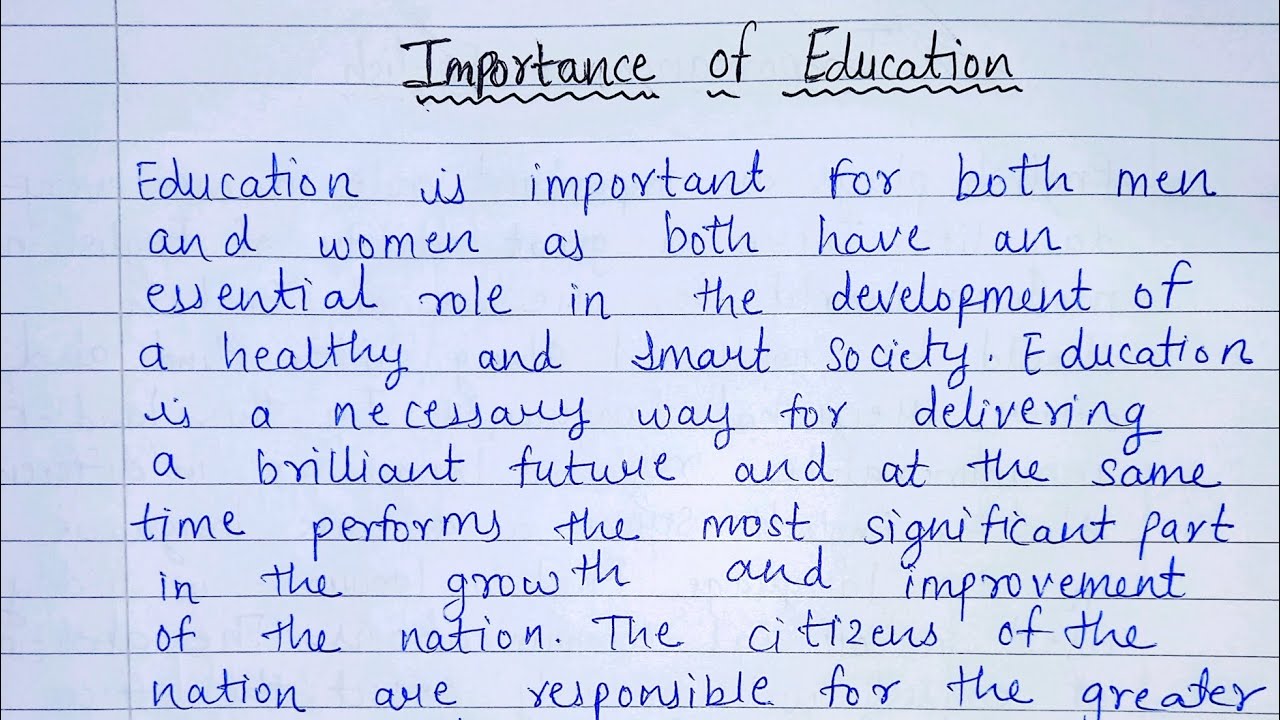 Importance of Education
Education is important for both men
and women as both have an
essential role in the development of
a healthy and smart society. Education
is a necessary way for delivering
a brilliant future and at the same
time performs the most significant part
in the growth and improvement
of the nation. The citizens of the
nation are responsible for the greater